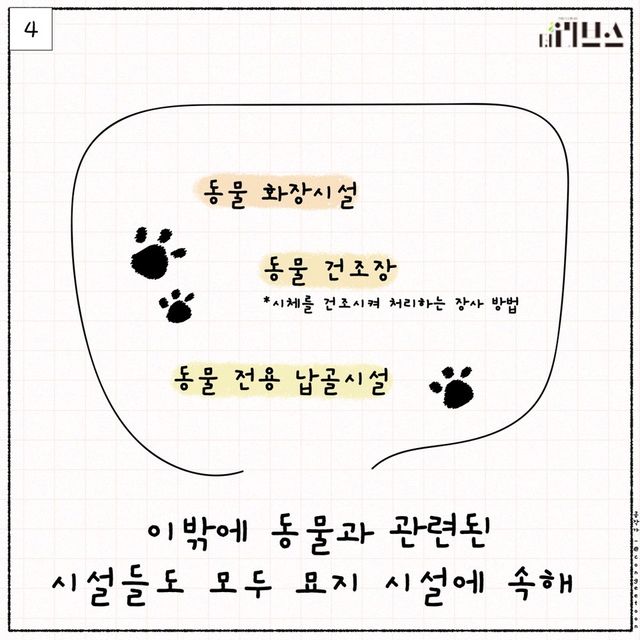 4
동물 화장시설
동물 건조장
*시체를 건조시켜 처리하는 장사 방법
동물 전용 납골시설
이밖에 동물과 관련된
시설들도 모두 묘지 시설에 속해